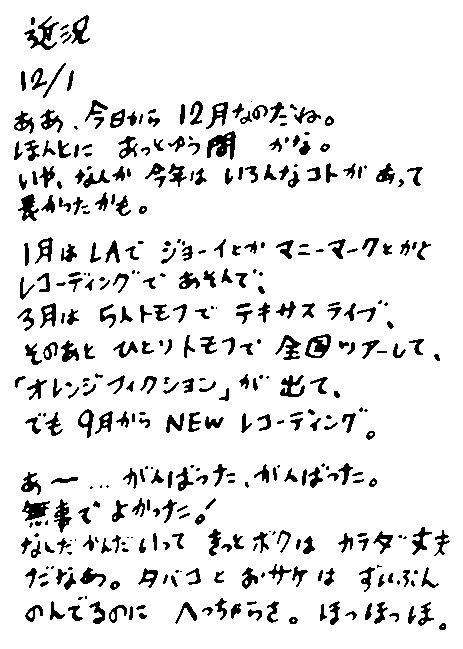 近況
12/1
ああ、今日から 12月なのだね。
ほんとに あっとゆう間 かな。
いや、なんか 今年は いろんなコトが あって
長かったかも。
1月は LAで ジョーイとか マニーマークとかと
レコーディングで あそんで、
3月は 5人トモフで テキサスライブ、
そのあと ひとりトモフで 全国ツアーして、
「オレンジフィクション」が 出て、
でも 9月から NEW レコーディング。
あ〜... がんばった、がんばった。
無事で よかった!
なんだかんだいって きっとボクは カラダ丈夫
だなあ。タバコと おサケは ずいぶん
のんでるのに へっちゃらさ。ほっほっほ。